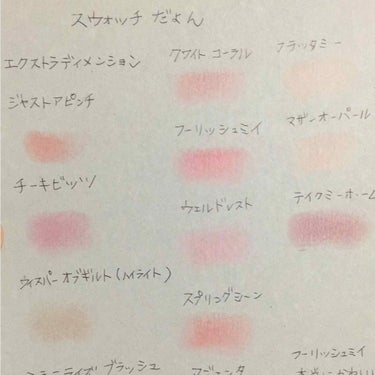 スウォッチ だよん
エクストラディメンション
ジャストアピンチ
チーキビッツ
ウィスパー オブギルト(ハイライト)
ミネラライズ ブラッシュ
クワイト コーラル
フーリッシュミイ
ウェルドレスト
スプリングシーン
フラッタミー
マザーオーパール
テイクミーホーム
フーリッシュミイ
本当にかわいい